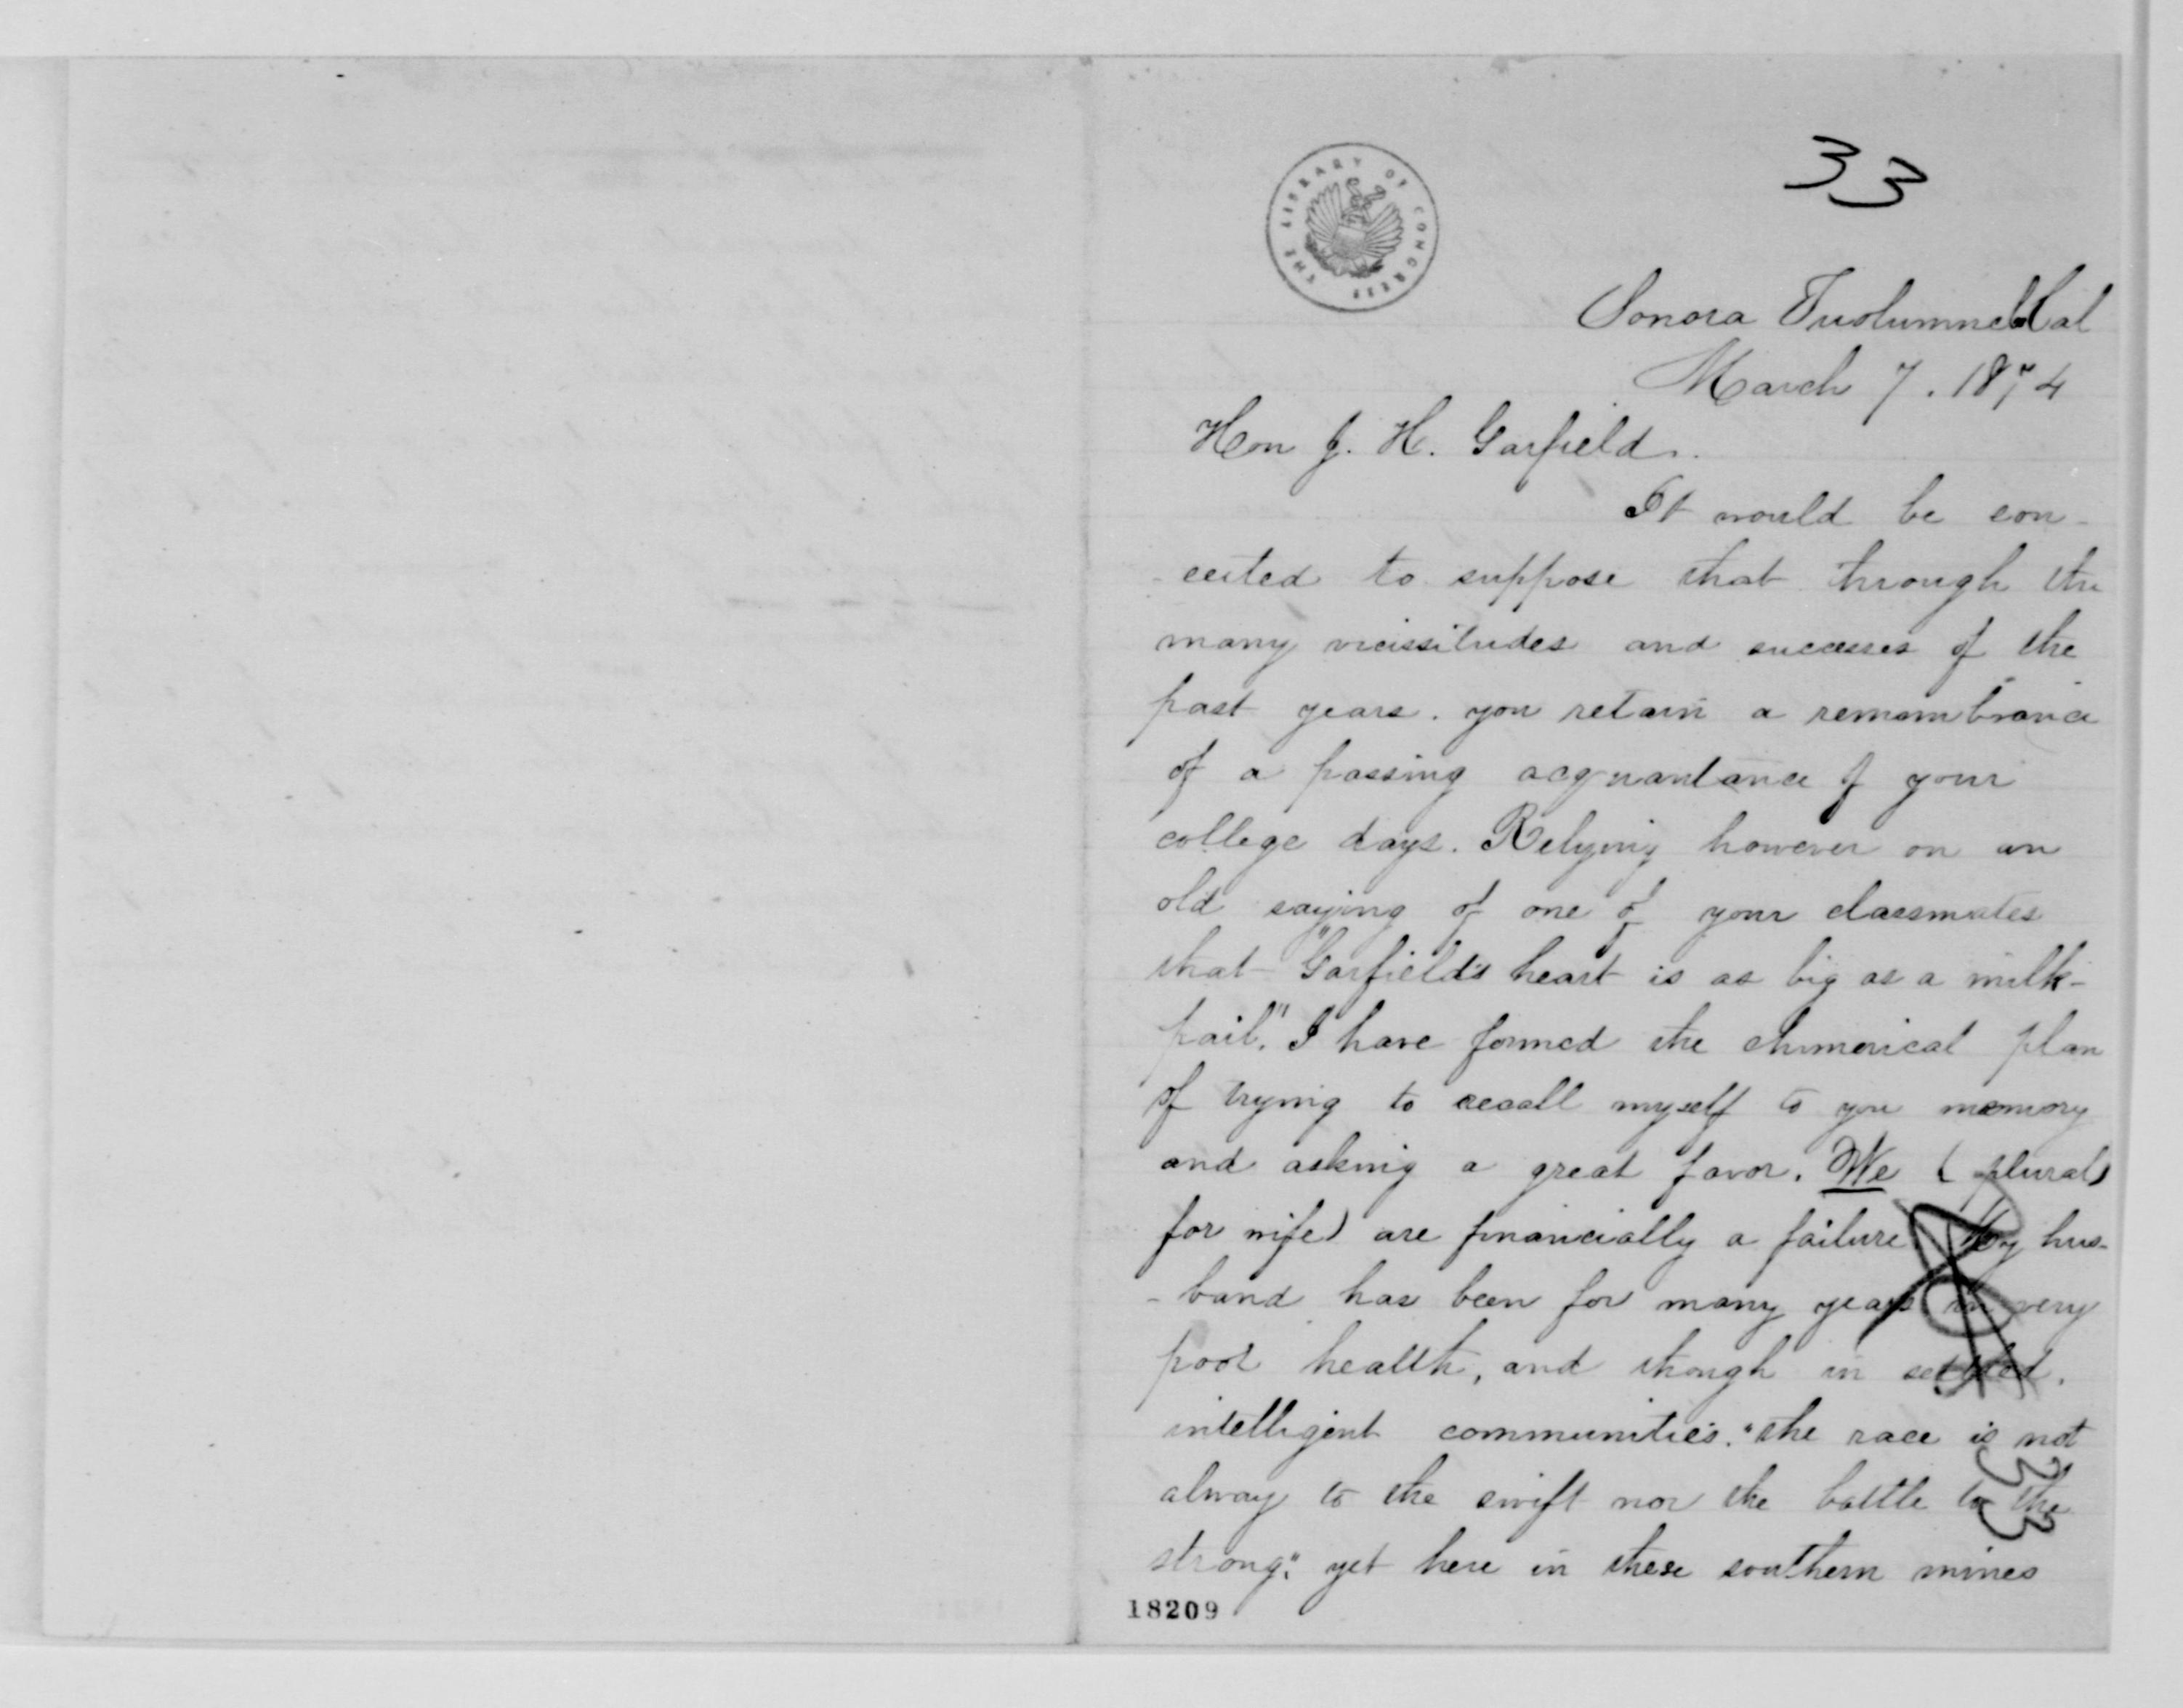 33
THE LIBRARY OF CONGRESS
Sonora Tuolumne Co Cal
March 7. 1874
Hon J. H. Garfield.
It would be con-
-ceited to suppose that through the
many vicissitudes and successes of the
past years. you retain a remembrance
of a passing acquantance of your
college days. Relying however on an
old saying of one of your classmates
that "Garfield's heart is as big as a milk-
pail." I have formed the chimerical plan
of trying to recall myself to you memory
and asking a great favor. We (plural
for wife) are financially a failure. My hus-
-band has been for many years in very
poor health, and though in settled.
intelligent communities. "the race is not
alway to the swift nor the battle to the
strong", yet here in these southern mines
33
18209